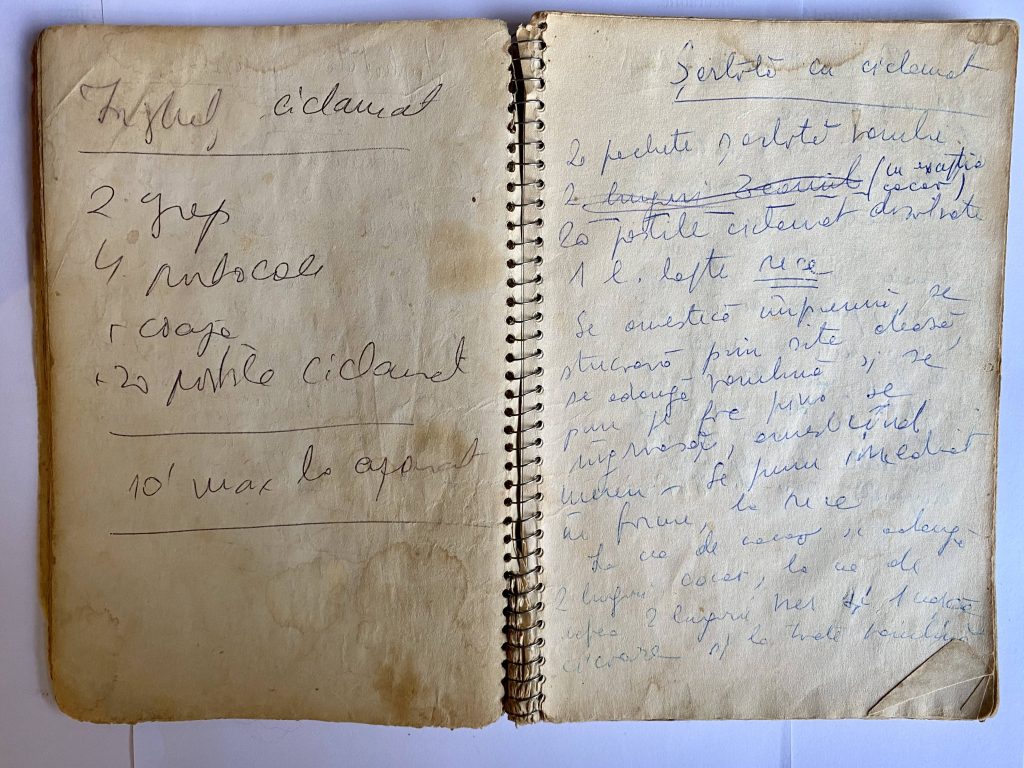 ciclamat
2 grep
4 portocale
+ coaja
+ 20 pastile ciclamat
10' max la aparat
Șarlotă cu ciclamat
2 pachete șarlotă vanilie
2 linguri (cu excepția
cacao)
20 pastile ciclamat dizolvate
1 l. lapte rece
Se amestică împreună, se
strecoară prin sită deasă,
se adaugă vanilină și se
pun pe foc până se
îngroașă, amestecând
mereu - Se pun imediat
în forme, la rece
La cea de cacao se adaugă
2 linguri cacao, la cea de
2 linguri nes 1
cicoare și la toate vanilină